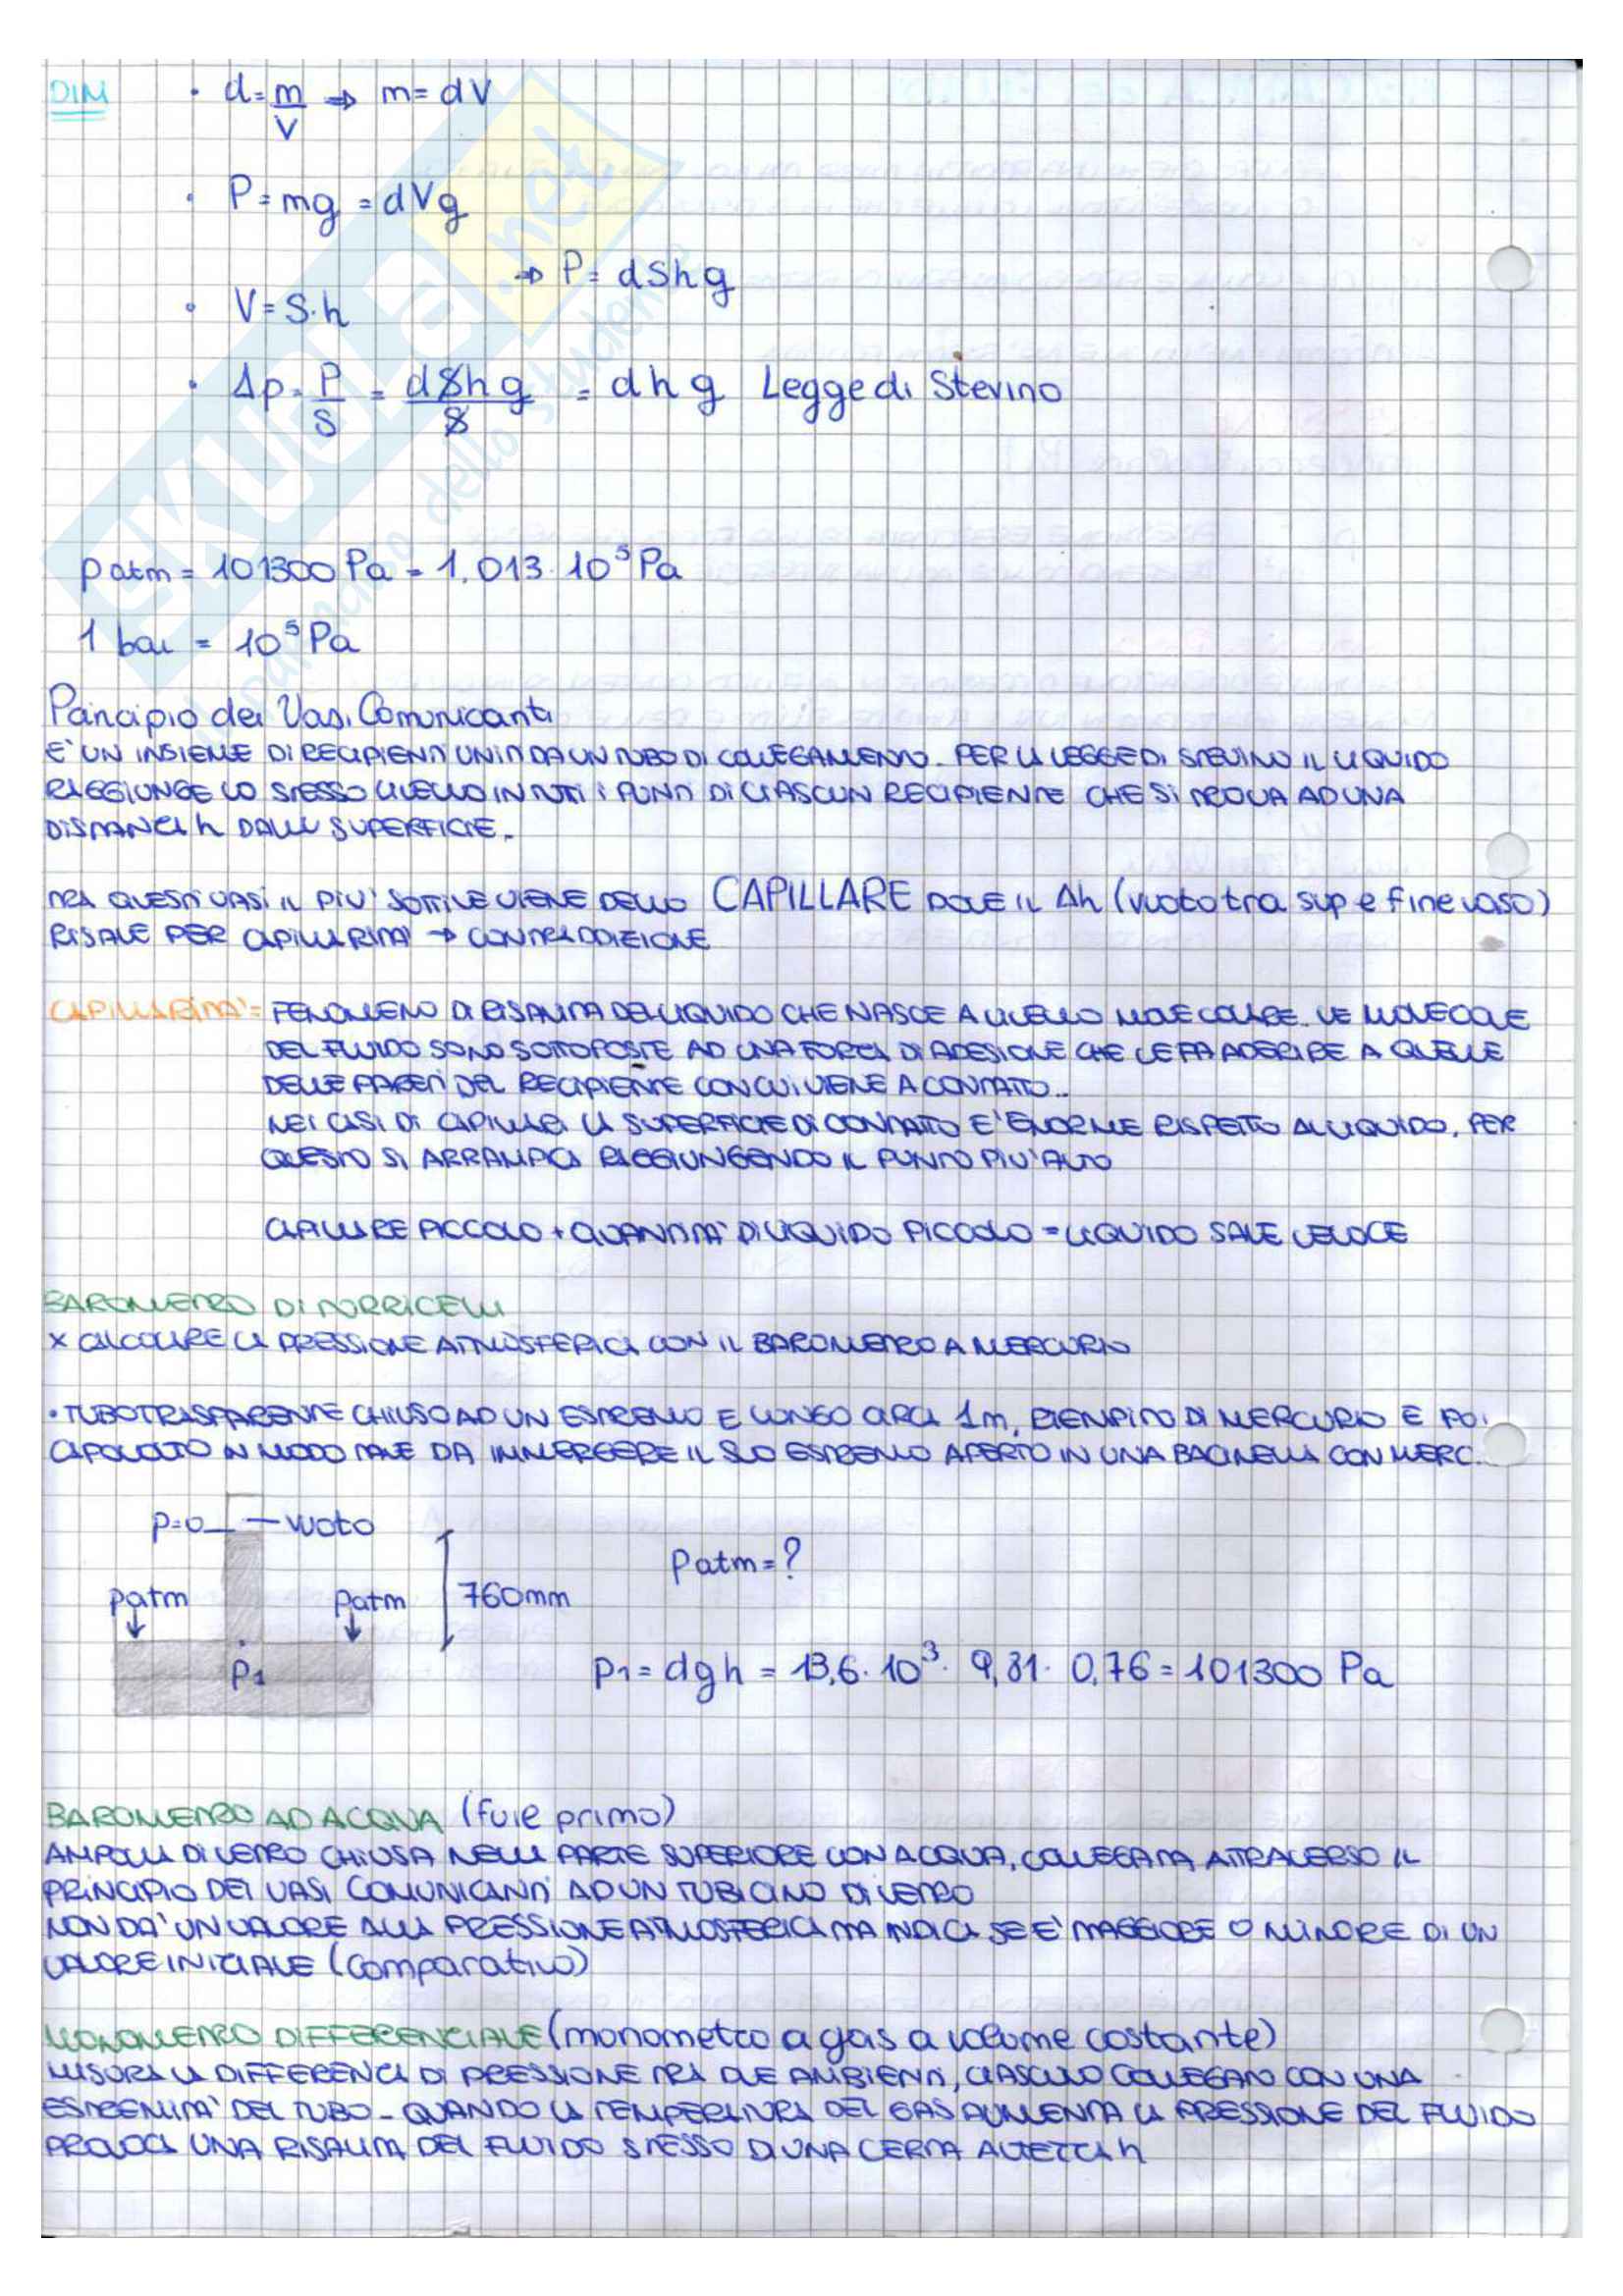 DIM
• d = m/V ⇒ m = dV
• P = mg = dVg
⇒ P = dShg
• V = S·h
• Δp = P/S = dShg/S = dhg Legge di Stevino
patm = 101300 Pa = 1,013 · 10⁵ Pa
1 bar = 10⁵ Pa
Principio dei Vasi Comunicanti
E' UN INSIEME DI RECIPIENTI UNITI DA UN TUBO DI COLLEGAMENTO. PER LA LEGGE DI STEVINO IL LIQUIDO
RAGGIUNGE LO STESSO LIVELLO IN TUTTI I PUNTI DI CIASCUN RECIPIENTE CHE SI TROVA AD UNA
DISTANZA h DALLA SUPERFICIE.
TRA QUESTI VASI IL PIU' SOTTILE VIENE DELLO CAPILLARE DOVE IL Δh (vuoto tra sup e fine vaso)
RISALE PER CAPILLARITA' → CONTRADDIZIONE
CAPILLARITA' = FENOMENO DI RISALITA DEL LIQUIDO CHE NASCE A LIVELLO MOLECOLARE. LE MOLECOLE
DEL FLUIDO SONO SOTTOPOSTE AD UNA FORZA DI ADESIONE CHE LE FA ADERIRE A QUELLE
DELLE PARETI DEL RECIPIENTE CON CUI VIENE A CONTATTO..
NEI CASI DI CAPILLARI LA SUPERFICIE DI CONTATTO E' ENORME RISPETTO AL LIQUIDO, PER
QUESTO SI ARRAMPICA RAGGIUNGENDO IL PUNTO PIU' ALTO
CAPILLARE PICCOLO + QUANTITA' DI LIQUIDO PICCOLO = LIQUIDO SALE VELOCE
BAROMETRO DI TORRICELLI
X CALCOLARE LA PRESSIONE ATMOSFERICA CON IL BAROMETRO A MERCURIO
• TUBO TRASPARENTE CHIUSO AD UN ESTREMO E LUNGO CIRCA 1m, RIEMPITO DI MERCURIO E POI
CAPOVOLTO IN MODO TALE DA IMMERGERE IL SUO ESTREMO APERTO IN UNA BACINELLA CON MERC.
p=0 — vuoto
patm = ?
patm patm 760mm
p1
p1 = dgh = 13,6 · 10³ · 9,81 · 0,76 = 101300 Pa
BAROMETRO AD ACQUA (fu il primo)
AMPOLLA DI VETRO CHIUSA NELLA PARTE SUPERIORE CON ACQUA, COLLEGATA ATTRAVERSO IL
PRINCIPIO DEI VASI COMUNICANTI AD UN TUBICINO DI VETRO
NON DA' UN VALORE ALLA PRESSIONE ATMOSFERICA MA INDICA SE E' MAGGIORE O MINORE DI UN
VALORE INIZIALE (comparativo)
MONOMETRO DIFFERENZIALE (monometro a gas a volume costante)
MISURA LA DIFFERENZA DI PRESSIONE TRA DUE AMBIENTI, CIASCUNO COLLEGATO CON UNA
ESTREMITA' DEL TUBO - QUANDO LA TEMPERATURA DEL GAS AUMENTA LA PRESSIONE DEL FLUIDO
PROVOCA UNA RISALITA DEL FLUIDO STESSO DI UNA CERTA ALTEZZA h
SKUOLA.net